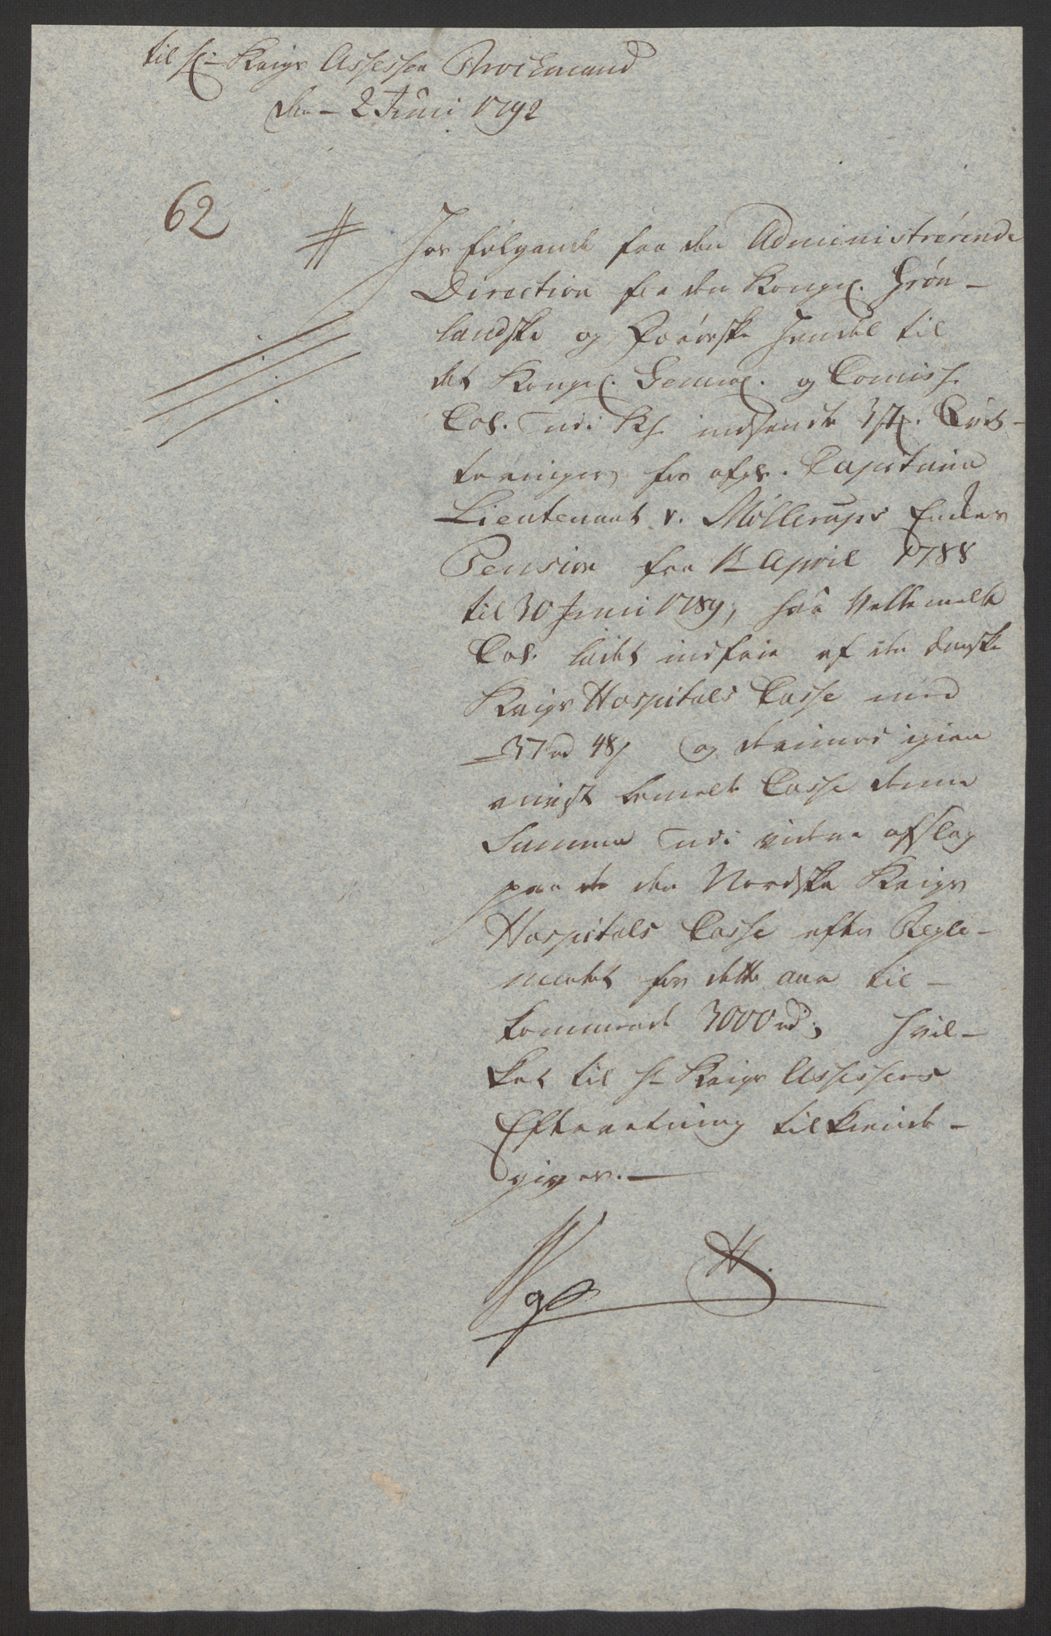 til H: Krigs Assessor Brockmand
den 2 Juni 1792
62
For følgende fra den Administrerende
Direction for den Kongel. Grøn-
landske og Færøeske Handel til
det Kongel. General. og Comiss:
Col. indsendte 3 st. Qvit-
teringer for afgl. Capitaine
Lieutenant v. Möllerups Enkes
Pension fra 1te April 1788
til 30 Juni 1789, har Velbemelte
Col. ladet indfrie af den danske
Krigs Hospitals Casse med
37 rd 48 s og derimod igien
bemelte Casse denne
Summa afslag
paa de den Nordske Krigs
Hospitals Casse efter Regle-
mentet for dette aar til-
kommende 3000 rd; hvil-
ket til H: Krigs Assessors
Efterretning tilkiende-
gives.